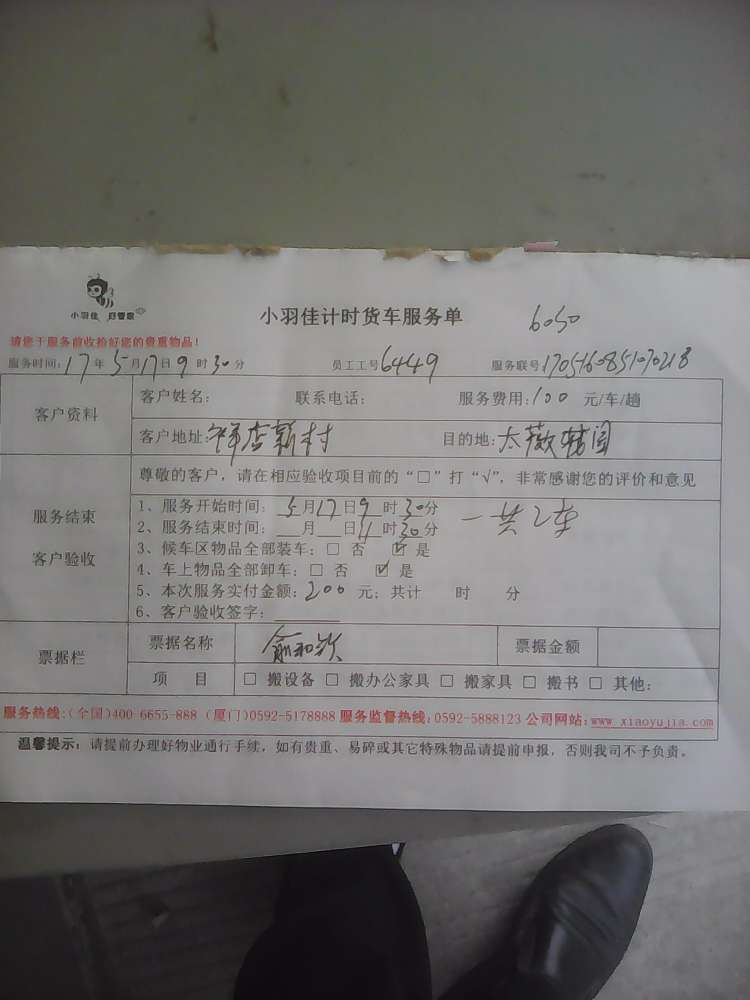 小羽佳 好管家
小羽佳计时货车服务单 6050
请您于服务前收拾好您的贵重物品！
服务时间：17年5月17日9时30分 员工工号6449 服务联号1705160851070218
客户资料
客户姓名： 联系电话： 服务费用：100 元/车/趟
客户地址：祥店新村 目的地：太薇
尊敬的客户，请在相应验收项目前的“□”打“√”，非常感谢您的评价和意见
服务结束
客户验收
1、服务开始时间：5月17日9时30分 一共2车
2、服务结束时间：__月__日11时30分
3、候车区物品全部装车：□ 否 ☑ 是
4、车上物品全部卸车：□ 否 ☑ 是
5、本次服务实付金额：200 元；共计 时 分
6、客户验收签字：
票据栏
票据名称 俞和钦 票据金额
项 目 □ 搬设备 □ 搬办公家具 □ 搬家具 □ 搬书 □ 其他：
服务热线：(全国)400-6655-888 (厦门)0592-5178888 服务监督热线：0592-5888123 公司网站：www.xiaoyujia.com
温馨提示：请提前办理好物业通行手续，如有贵重、易碎或其它特殊物品请提前申报，否则我司不予负责。